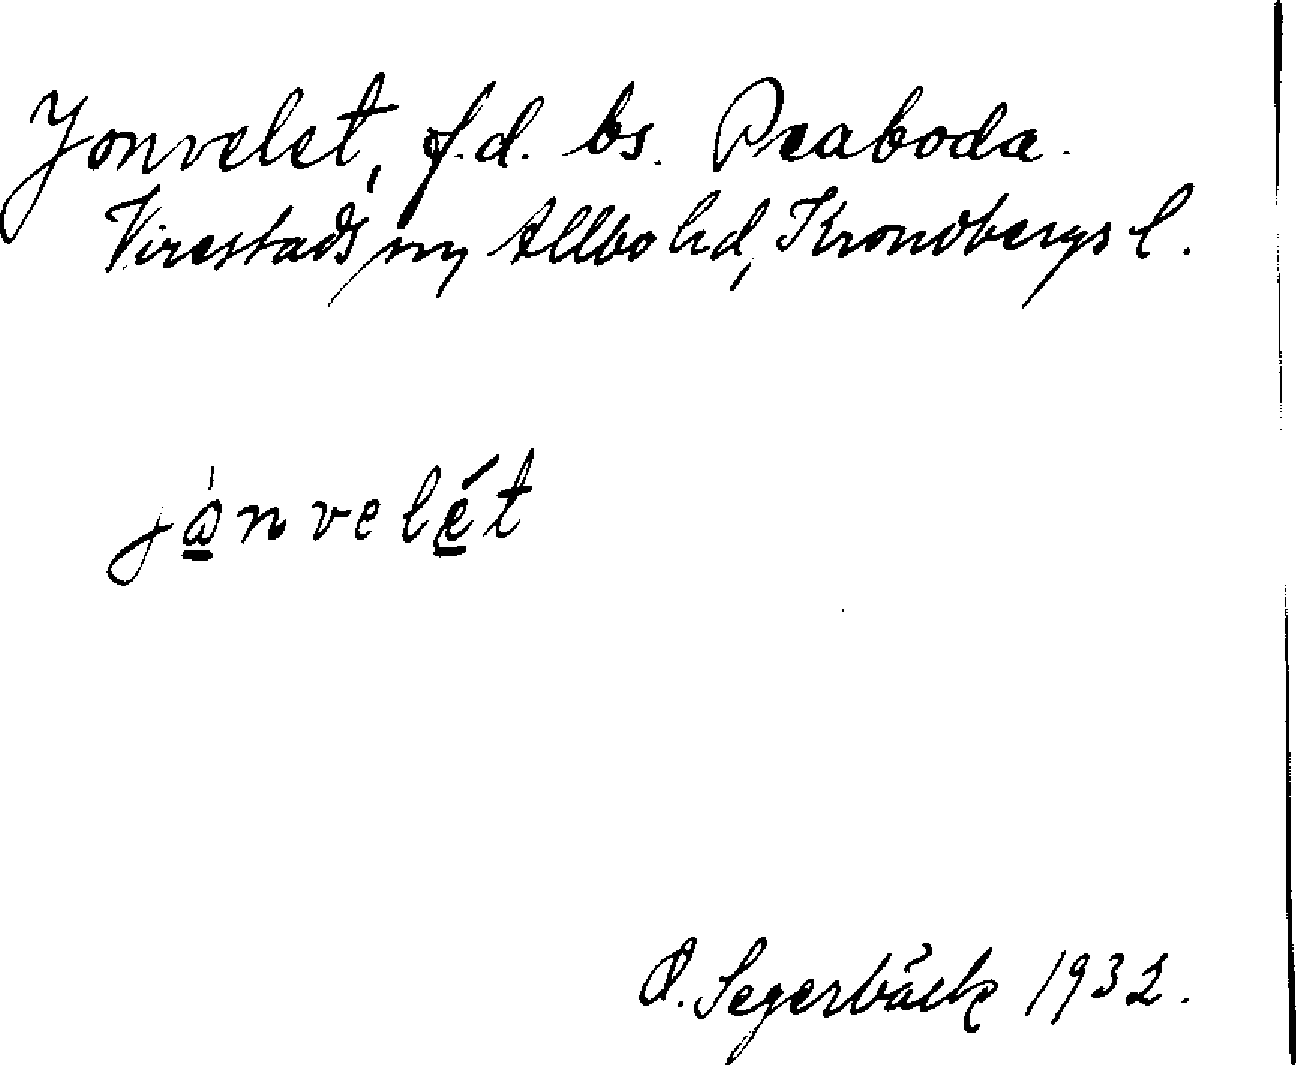 Jonvelet, f.d. bs. Peaboda.
Virestads sn, Allbo hd, Kronobergs l.
jånvelét
A. Segerbäck 1932.